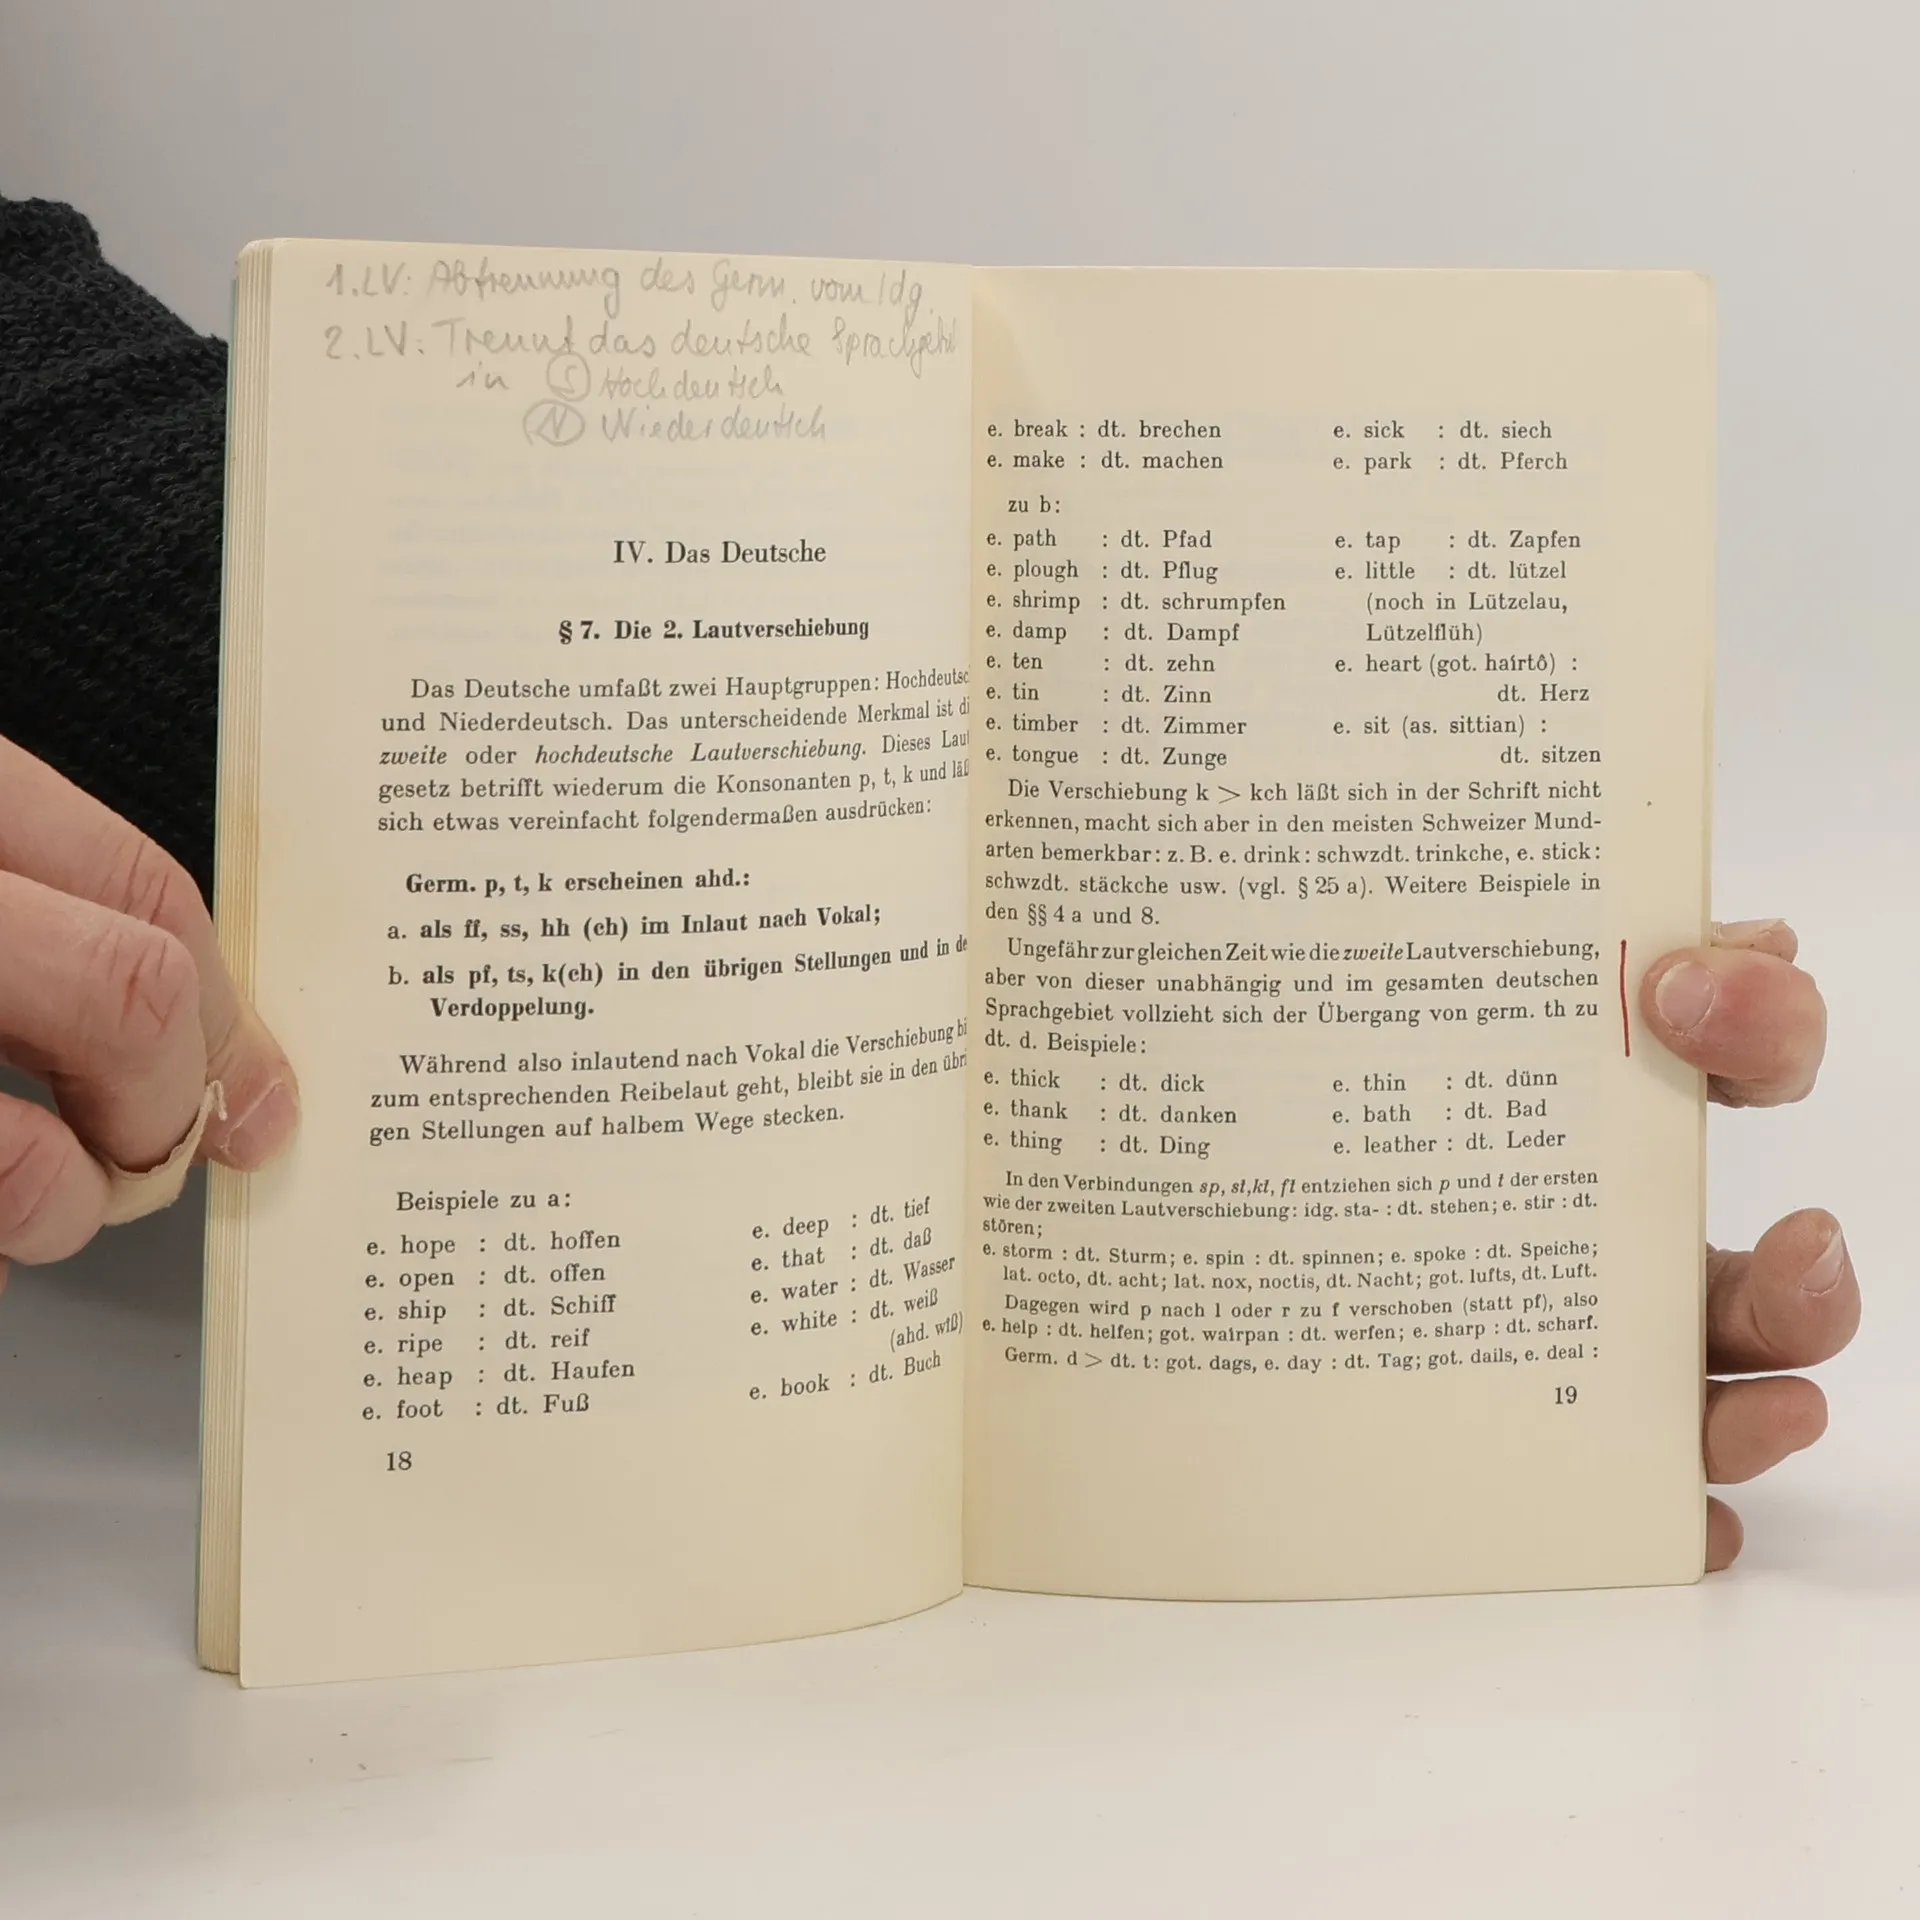 1.LV: Abtrennung des Germ. vom Idg.
2.LV: Trennt das deutsche
in S Hochdeutsch
N Niederdeutsch
IV. Das Deutsche
§ 7. Die 2. Lautverschiebung
Das Deutsche umfaßt zwei Hauptgruppen: Hochdeutsc
und Niederdeutsch. Das unterscheidende Merkmal ist di
zweite oder hochdeutsche Lautverschiebung. Dieses Laut
gesetz betrifft wiederum die Konsonanten p, t, k und läß
sich etwas vereinfacht folgendermaßen ausdrücken:
Germ. p, t, k erscheinen ahd.:
a. als ff, ss, hh (ch) im Inlaut nach Vokal;
b. als pf, ts, k(ch) in den übrigen Stellungen und in de
Verdoppelung.
Während also inlautend nach Vokal die Verschiebung bi
zum entsprechenden Reibelaut geht, bleibt sie in den übri
gen Stellungen auf halbem Wege stecken.
Beispiele zu a:
e. hope : dt. hoffen
e. open : dt. offen
e. ship : dt. Schiff
e. ripe : dt. reif
e. heap : dt. Haufen
e. foot : dt. Fuß
e. deep : dt. tief
e. that : dt. daß
e. water : dt. Wasser
e. white : dt. weiß
(ahd. wîß)
e. book : dt. Buch
18
e. break : dt. brechen
e. make : dt. machen
e. sick : dt. siech
e. park : dt. Pferch
zu b:
e. path : dt. Pfad
e. plough : dt. Pflug
e. shrimp : dt. schrumpfen
e. damp : dt. Dampf
e. ten : dt. zehn
e. tin : dt. Zinn
e. timber : dt. Zimmer
e. tongue : dt. Zunge
e. tap : dt. Zapfen
e. little : dt. lützel
(noch in Lützelau,
Lützelflüh)
e. heart (got. haírtô) :
dt. Herz
e. sit (as. sittian) :
dt. sitzen
Die Verschiebung k > kch läßt sich in der Schrift nicht
erkennen, macht sich aber in den meisten Schweizer Mund-
arten bemerkbar: z. B. e. drink: schwzdt. trinkche, e. stick:
schwzdt. stäckche usw. (vgl. § 25 a). Weitere Beispiele in
den §§ 4 a und 8.
Ungefähr zur gleichen Zeit wie die zweite Lautverschiebung,
aber von dieser unabhängig und im gesamten deutschen
Sprachgebiet vollzieht sich der Übergang von germ. th zu
dt. d. Beispiele:
e. thick : dt. dick
e. thank : dt. danken
e. thing : dt. Ding
e. thin : dt. dünn
e. bath : dt. Bad
e. leather : dt. Leder
In den Verbindungen sp, st, kt, ft entziehen sich p und t der ersten
wie der zweiten Lautverschiebung: idg. sta- : dt. stehen; e. stir : dt.
stören;
e. storm : dt. Sturm; e. spin : dt. spinnen; e. spoke : dt. Speiche;
lat. octo, dt. acht; lat. nox, noctis, dt. Nacht; got. lufts, dt. Luft.
Dagegen wird p nach l oder r zu f verschoben (statt pf), also
e. help : dt. helfen; got. waírpan : dt. werfen; e. sharp : dt. scharf.
Germ. d > dt. t: got. dags, e. day : dt. Tag; got. dails, e. deal :
19